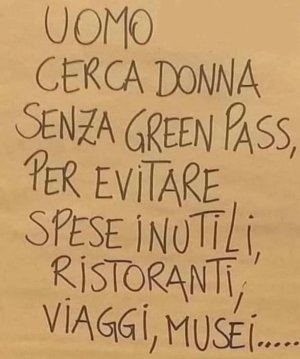 UOMO
CERCA DONNA
SENZA GREEN PASS,
PER EVITARE
SPESE INUTILI,
RISTORANTI,
VIAGGI, MUSEI.....